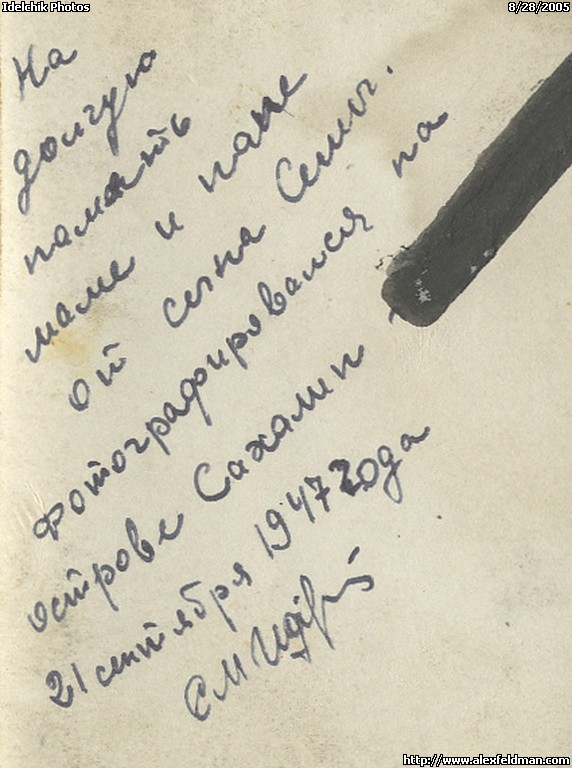 Idelchik Photos
8/28/2005
На
долгую
память
маме и папе
от сына Семы.
Фотографировался на
острове Сахалин -
21 сентября 1947 года
http://www.alexfeldman.com